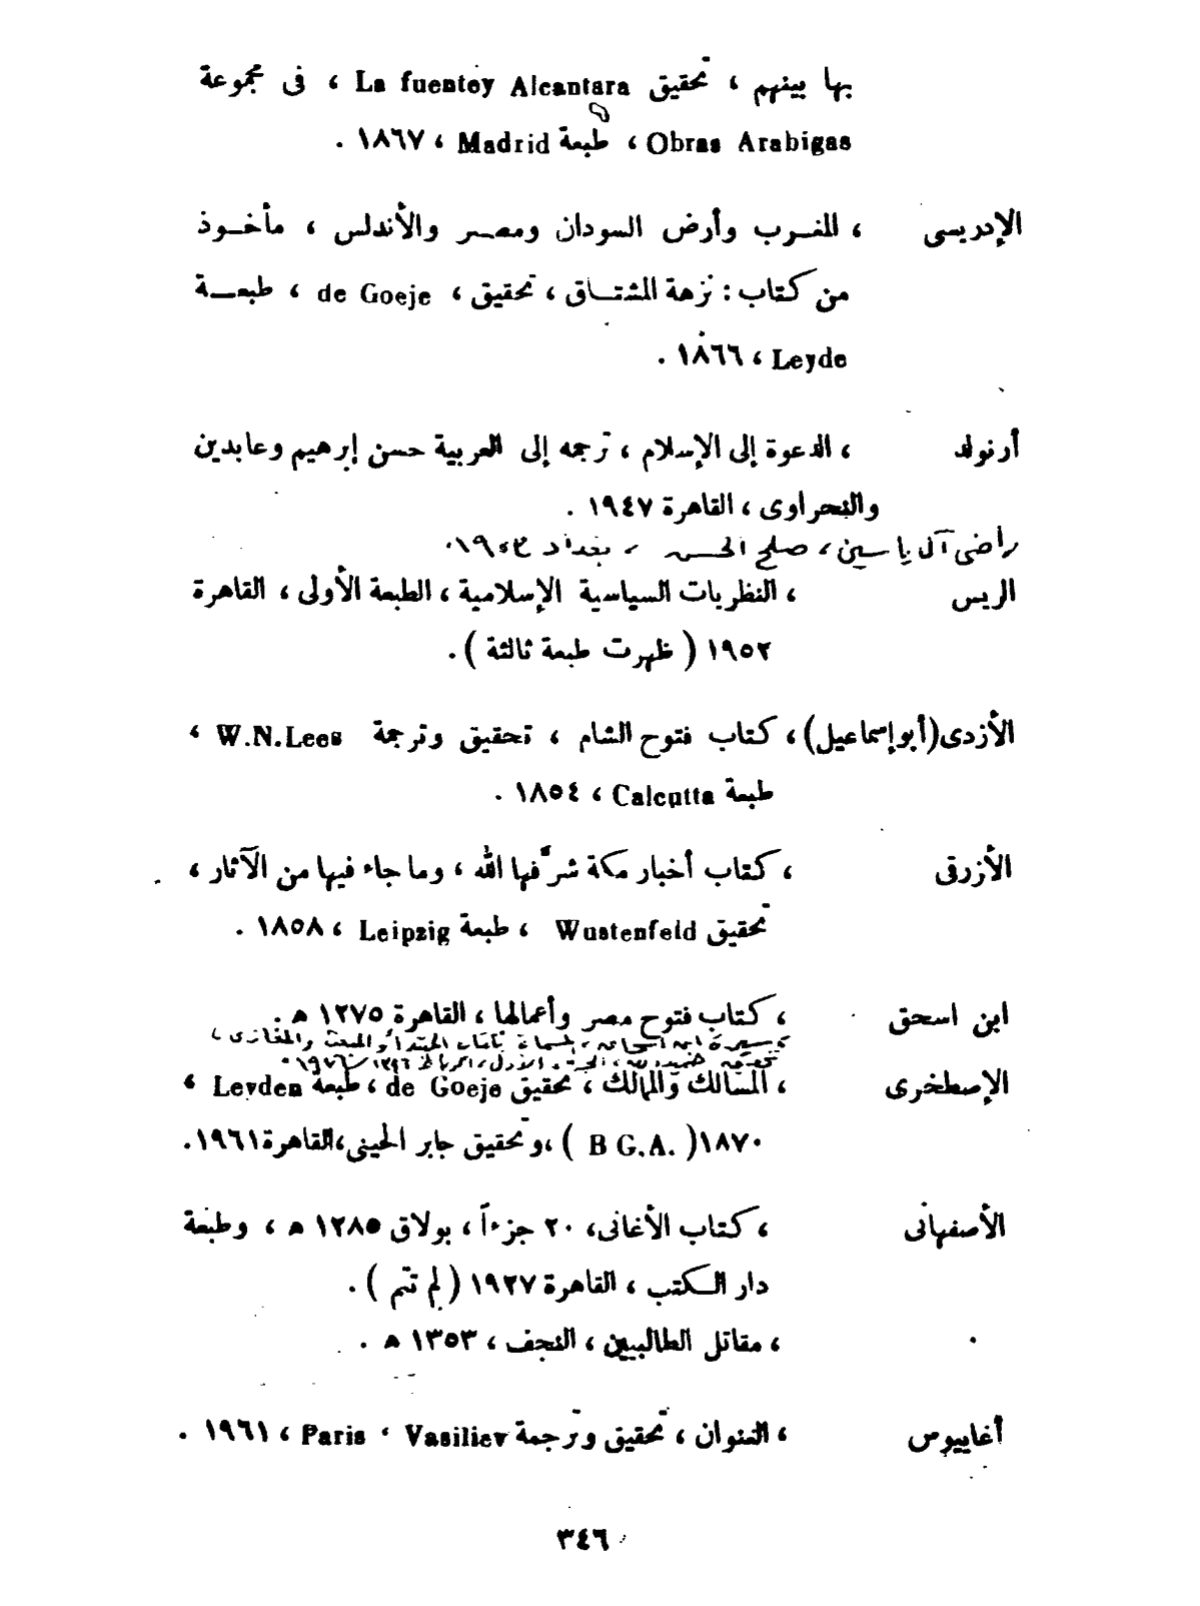 بها بينهم ، تحقيق La fuentey Alcantara ، فى مجموعة
Obras Arabigas ، طبعة Madrid ، ١٨٦٧ .
الإدريسى ، المغرب وأرض السودان ومصر والأندلس ، مأخوذ
من كتاب : نزهة المشتاق ، تحقيق ، de Goeje ، طبعة
Leyde ، ١٨٦٦ .
أرنولد ، الدعوة إلى الإسلام ، ترجمه إلى العربية حسن إبرهيم وعابدين
والنحراوى ، القاهرة ١٩٤٧ .
راضى آل ياسين ، صلح الحسن ، بغداد ١٩٥٣.
الريس ، النظريات السياسية الإسلامية ، الطبعة الأولى ، القاهرة
١٩٥٢ ( ظهرت طبعة ثالثة ) .
الأزدى (أبو إسماعيل) ، كتاب فتوح الشام ، تحقيق وترجمة W.N.Lees ،
طبعة Calcutta ، ١٨٥٤ .
الأزرقى ، كتاب أخبار مكة شرّفها الله ، وما جاء فيها من الآثار ،
تحقيق Wustenfeld ، طبعة Leipzig ، ١٨٥٨ .
ابن اسحق ، كتاب فتوح مصر وأعمالها ، القاهرة ١٢٧٥ ه .
سيرة ابن اسحاق ، المسماة بكتاب المبتدأ والمبعث والمغازى ،
تحقيق حميد الله ،
الإصطخرى ، المسالك والممالك ، تحقيق de Goeje ، طبعة Leyden ،
١٨٧٠ ( B G.A. ) ، وتحقيق جابر الحينى ، القاهرة ١٩٦١ .
الأصفهانى ، كتاب الأغانى ، ٢٠ جزءاً ، بولاق ١٢٨٥ ه ، وطبعة
دار الكتب ، القاهرة ١٩٢٧ ( لم تتم ) .
، مقاتل الطالبيين ، النجف ، ١٣٥٣ ه .
أغابيوس ، العنوان ، تحقيق وترجمة Vasiliev ، Paris ، ١٩٦١ .
٣٤٦